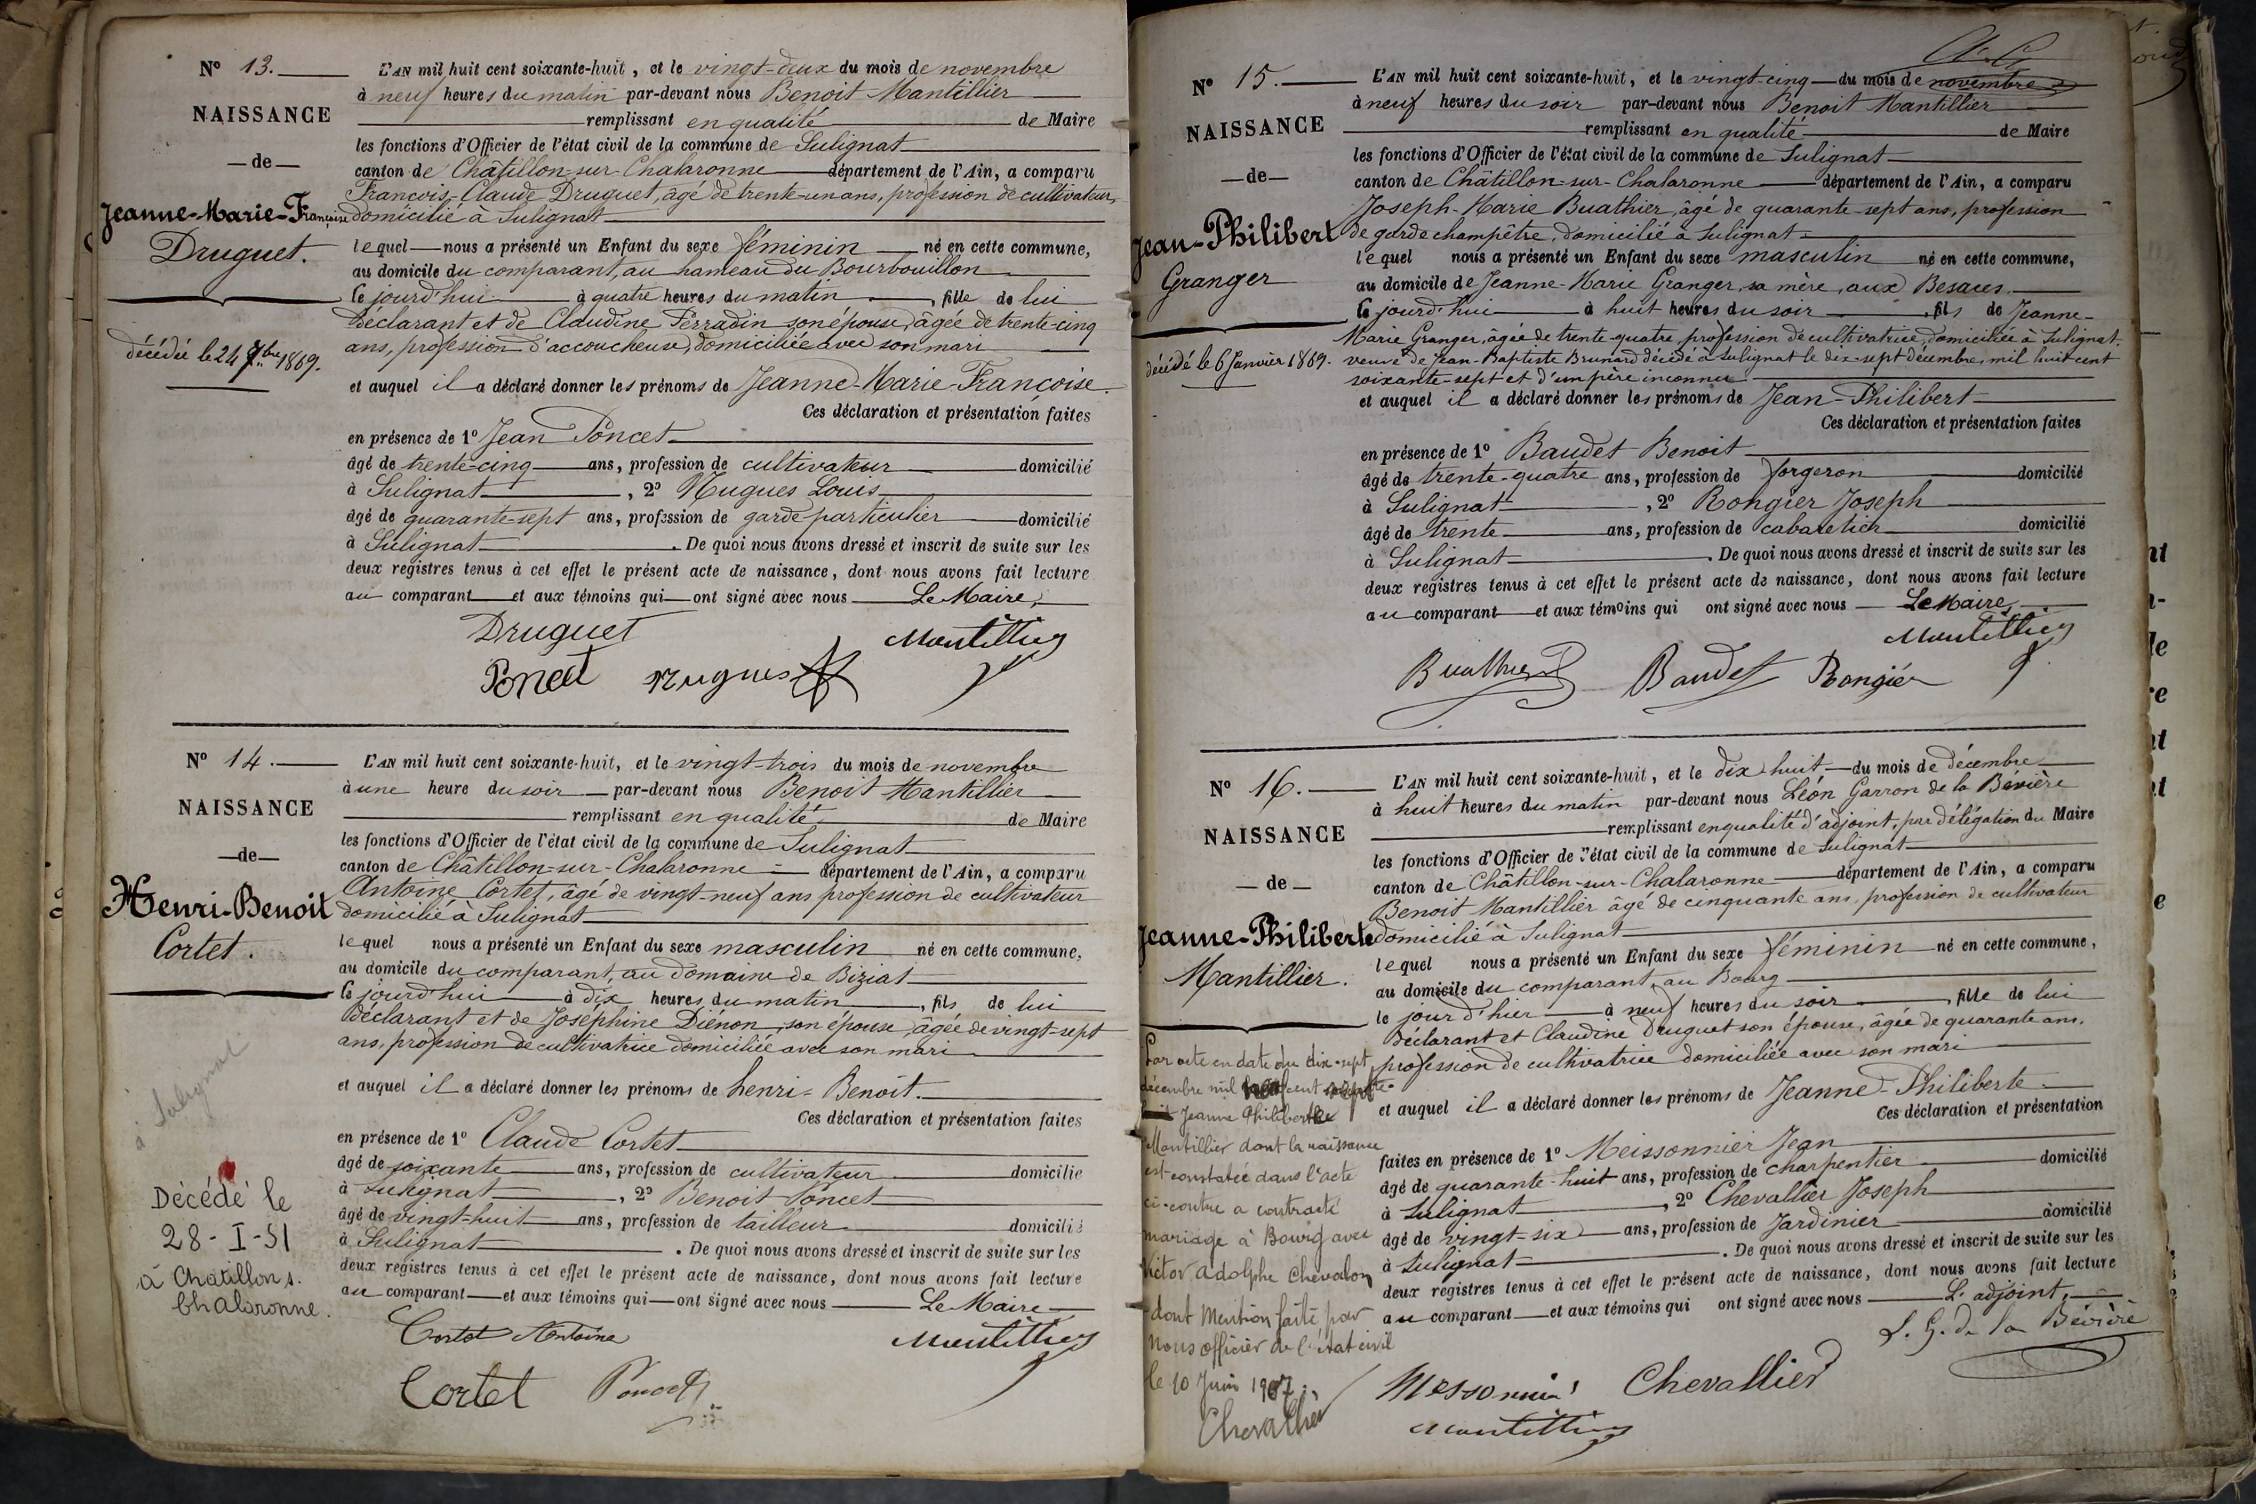 N° 13.
NAISSANCE
— de —
Jeanne-Marie-Françoise
Druguet.
décédée le 24 7bre 1869.
L'AN mil huit cent soixante-huit, et le vingt-deux du mois de novembre
à neuf heures du matin par-devant nous Benoit Mantillier
remplissant en qualité de Maire
les fonctions d'Officier de l'état civil de la commune de Sulignat
canton de Châtillon-sur-Chalaronne département de l'Ain, a comparu
François-Claude Druguet, âgé de trente-un ans, profession de cultivateur,
domicilié à Sulignat
lequel nous a présenté un Enfant du sexe féminin né en cette commune,
au domicile du comparant, au hameau du Bourbouillon
ce jourd'hui à quatre heures du matin, fille de lui
déclarant et de Claudine Ferradin son épouse, âgée de trente-cinq
ans, profession d'accoucheuse, domiciliée avec son mari
et auquel il a déclaré donner les prénoms de Jeanne-Marie-Françoise.
Ces déclaration et présentation faites
en présence de 1° Jean Poncet
âgé de trente-cinq ans, profession de cultivateur domicilié
à Sulignat, 2° Nugues Louis
âgé de quarante-sept ans, profession de garde particulier domicilié
à Sulignat. De quoi nous avons dressé et inscrit de suite sur les
deux registres tenus à cet effet le présent acte de naissance, dont nous avons fait lecture
au comparant et aux témoins qui ont signé avec nous Le Maire,
Druguet Mantillier
Poncet Nugues
N° 14.
NAISSANCE
— de —
Henri-Benoit
Cortet.
à Sulignat
Décédé le
28-I-51
à Châtillon s.
Chalaronne.
L'AN mil huit cent soixante-huit, et le vingt-trois du mois de novembre
à une heure du soir par-devant nous Benoit Mantillier
remplissant en qualité de Maire
les fonctions d'Officier de l'état civil de la commune de Sulignat
canton de Châtillon-sur-Chalaronne département de l'Ain, a comparu
Antoine Cortet, âgé de vingt-neuf ans profession de cultivateur
domicilié à Sulignat
lequel nous a présenté un Enfant du sexe masculin né en cette commune,
au domicile du comparant, au domaine de Biziat
ce jourd'hui à dix heures du matin, fils de lui
déclarant et de Joséphine Diénon, son épouse, âgée de vingt-sept
ans, profession de cultivatrice domiciliée avec son mari
et auquel il a déclaré donner les prénoms de henri-Benoit.
Ces déclaration et présentation faites
en présence de 1° Claude Cortet
âgé de soixante ans, profession de cultivateur domicilié
à Sulignat, 2° Benoit Poncet
âgé de vingt-huit ans, profession de tailleur domicilié
à Sulignat. De quoi nous avons dressé et inscrit de suite sur les
deux registres tenus à cet effet le présent acte de naissance, dont nous avons fait lecture
au comparant et aux témoins qui ont signé avec nous Le Maire
Cortet Antoine Mantillier
Cortet Poncet
N° 15.
NAISSANCE
— de —
Jean-Philibert
Granger
décédé le 6 Janvier 1869.
L'AN mil huit cent soixante-huit, et le vingt-cinq du mois de novembre
à neuf heures du soir par-devant nous Benoit Mantillier
remplissant en qualité de Maire
les fonctions d'Officier de l'état civil de la commune de Sulignat
canton de Châtillon-sur-Chalaronne département de l'Ain, a comparu
Joseph-Marie Buathier, âgé de quarante-sept ans, profession
de garde champêtre, domicilié à Sulignat
lequel nous a présenté un Enfant du sexe masculin né en cette commune,
au domicile de Jeanne-Marie Granger, sa mère, aux Besaces.
ce jourd'hui à huit heures du soir, fils de Jeanne-
Marie Granger, âgée de trente-quatre, profession de cultivatrice, domiciliée à Sulignat,
veuve de Jean-Baptiste Brunard décédé à Sulignat le dix-sept décembre, mil huit cent
soixante-sept et d'un père inconnu
et auquel il a déclaré donner les prénoms de Jean-Philibert
Ces déclaration et présentation faites
en présence de 1° Baudet Benoit
âgé de trente-quatre ans, profession de forgeron domicilié
à Sulignat, 2° Rongier Joseph
âgé de trente ans, profession de cabaretier domicilié
à Sulignat. De quoi nous avons dressé et inscrit de suite sur les
deux registres tenus à cet effet le présent acte de naissance, dont nous avons fait lecture
au comparant et aux témoins qui ont signé avec nous Le Maire,
Mantillier
Buathier Baudet Rongier
N° 16.
NAISSANCE
— de —
Jeanne-Philiberte
Mantillier.
Par acte en date du dix-sept
décembre mil cent
huit Jeanne Philiberte
Mantillier dont la naissance
est constatée dans l'acte
ci-contre a contracté
mariage à Bourg avec
Victor Adolphe Chevalon
dont Mention faite par
Nous officier de l'état civil
le 10 Juin 1907.
Chevallier
L'AN mil huit cent soixante-huit, et le dix-huit du mois de décembre
à huit heures du matin par-devant nous Léon Garron de la Bévière
remplissant en qualité d'adjoint, par délégation du Maire
les fonctions d'Officier de l'état civil de la commune de Sulignat
canton de Châtillon-sur-Chalaronne département de l'Ain, a comparu
Benoit Mantillier âgé de cinquante ans, profession de cultivateur
domicilié à Sulignat
lequel nous a présenté un Enfant du sexe féminin né en cette commune,
au domicile du comparant, au Bourg
le jour d'hier à neuf heures du soir, fille de lui
déclarant et Claudine Druguet son épouse, âgée de quarante ans,
profession de cultivatrice domiciliée avec son mari
et auquel il a déclaré donner les prénoms de Jeanne-Philiberte
Ces déclaration et présentation
faites en présence de 1° Meissonnier Jean
âgé de quarante-huit ans, profession de charpentier domicilié
à Sulignat, 2° Chevallier Joseph
âgé de vingt-six ans, profession de Jardinier domicilié
à Sulignat. De quoi nous avons dressé et inscrit de suite sur les
deux registres tenus à cet effet le présent acte de naissance, dont nous avons fait lecture
au comparant et aux témoins qui ont signé avec nous L'adjoint,
L. G. de la Bévière
Messonnier Chevallier
Mantillier